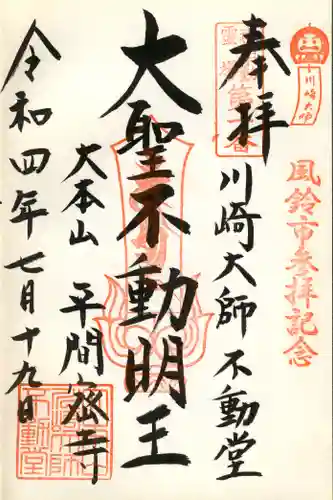 川崎大師
風鈴市参拝記念
奉拝
川崎大師不動堂
大聖不動明王
大本山 平間寺
令和四年七月十九日
不動堂